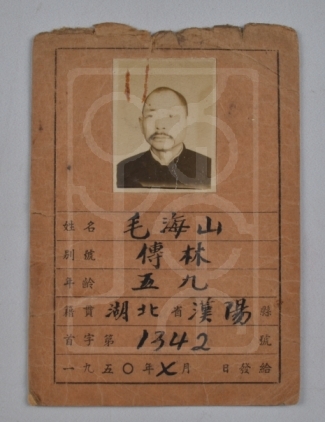 姓名 毛海山
別號 傳林
年齡 五九
籍貫 湖北省漢陽縣
首字第 1342 號
一九五〇年七月 日發給